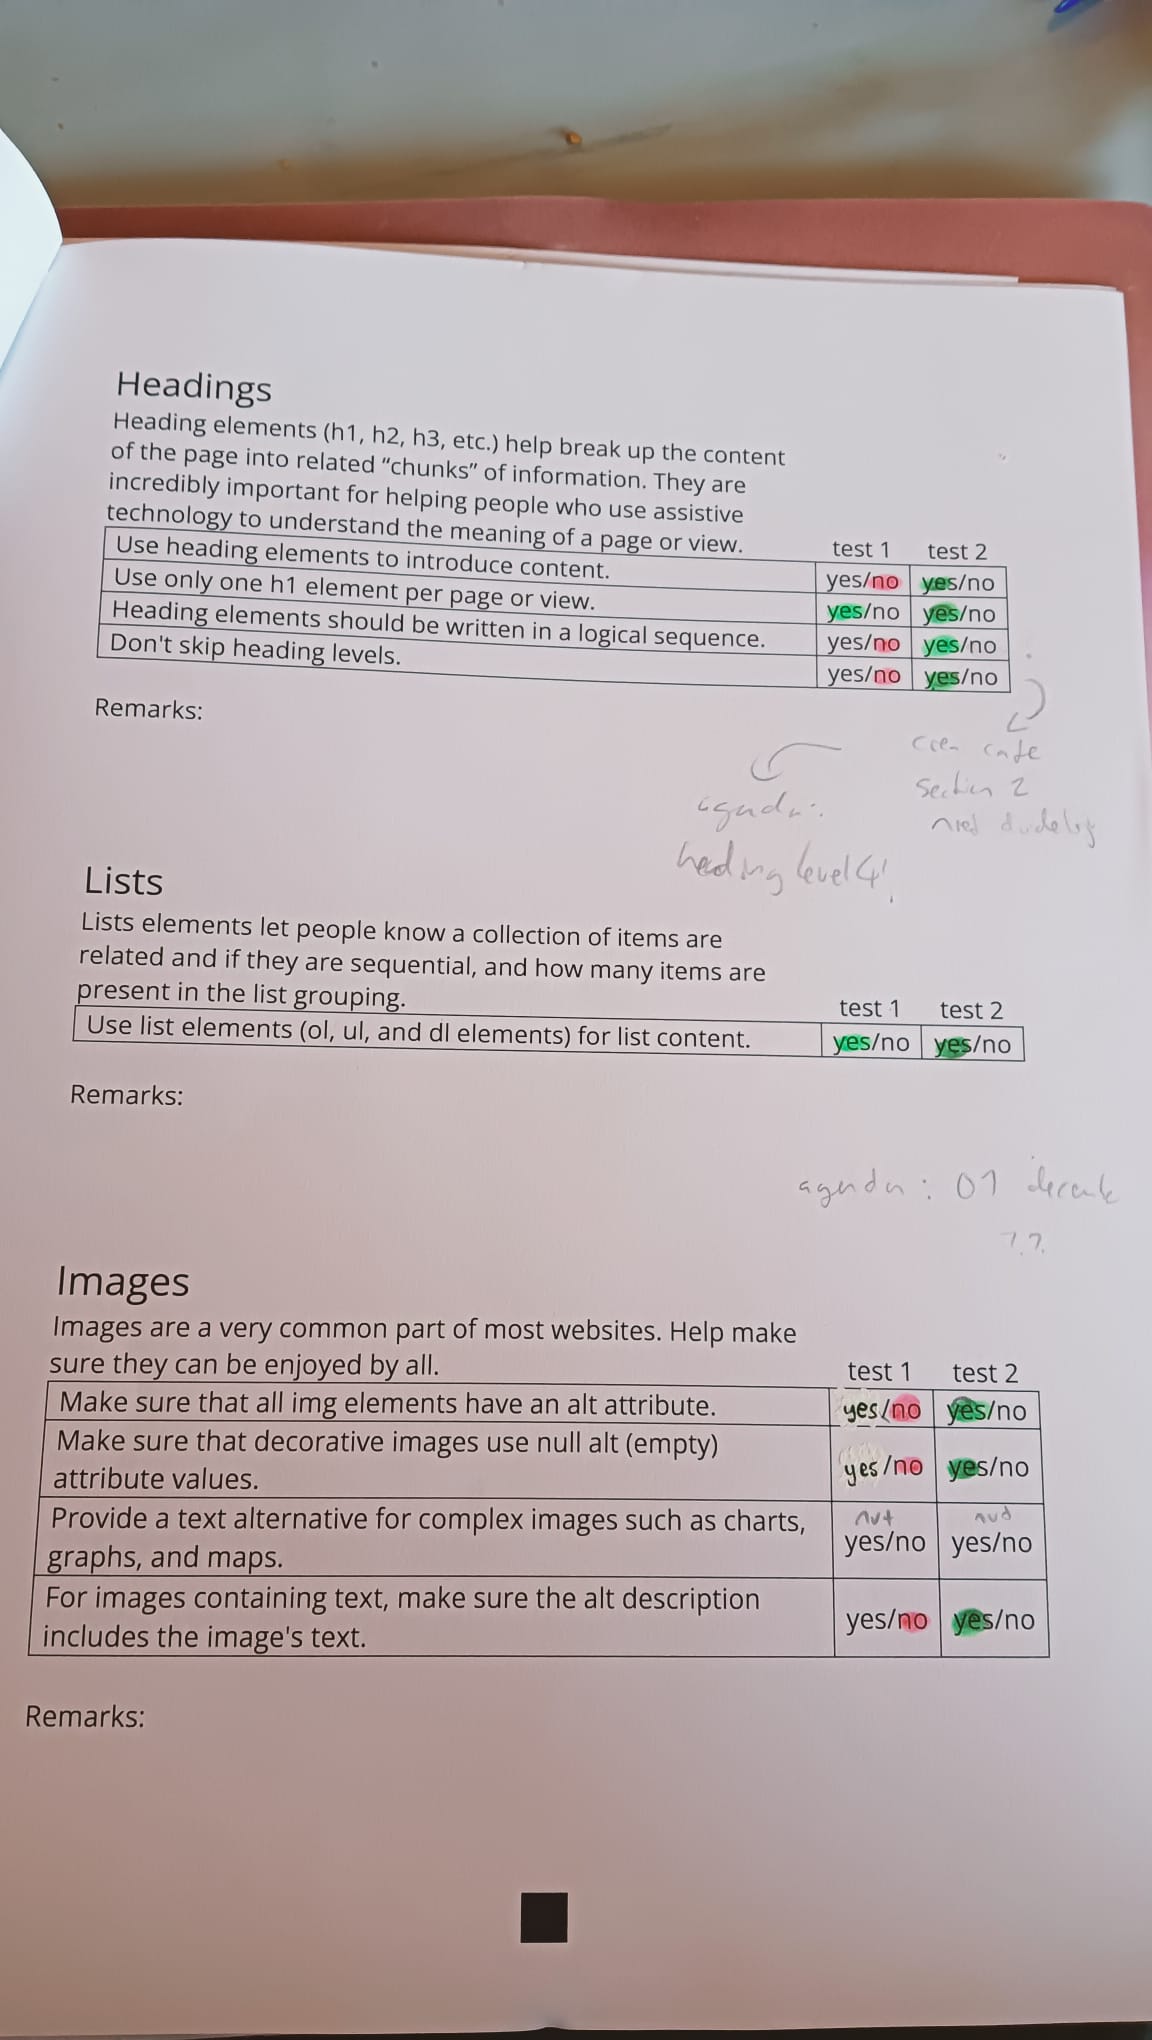 Headings
Heading elements (h1, h2, h3, etc.) help break up the content
of the page into related “chunks” of information. They are
incredibly important for helping people who use assistive
technology to understand the meaning of a page or view.
test 1 test 2
Use heading elements to introduce content. yes/no yes/no
Use only one h1 element per page or view. yes/no yes/no
Heading elements should be written in a logical sequence. yes/no yes/no
Don't skip heading levels. yes/no yes/no
Remarks:
section 2
agenda:
heading level 4!
Lists
Lists elements let people know a collection of items are
related and if they are sequential, and how many items are
present in the list grouping.
test 1 test 2
Use list elements (ol, ul, and dl elements) for list content. yes/no yes/no
Remarks:
agenda: 01
??
Images
Images are a very common part of most websites. Help make
sure they can be enjoyed by all.
test 1 test 2
Make sure that all img elements have an alt attribute. yes/no yes/no
Make sure that decorative images use null alt (empty)
attribute values. yes/no yes/no
Provide a text alternative for complex images such as charts,
graphs, and maps. yes/no yes/no
For images containing text, make sure the alt description
includes the image's text. yes/no yes/no
Remarks: